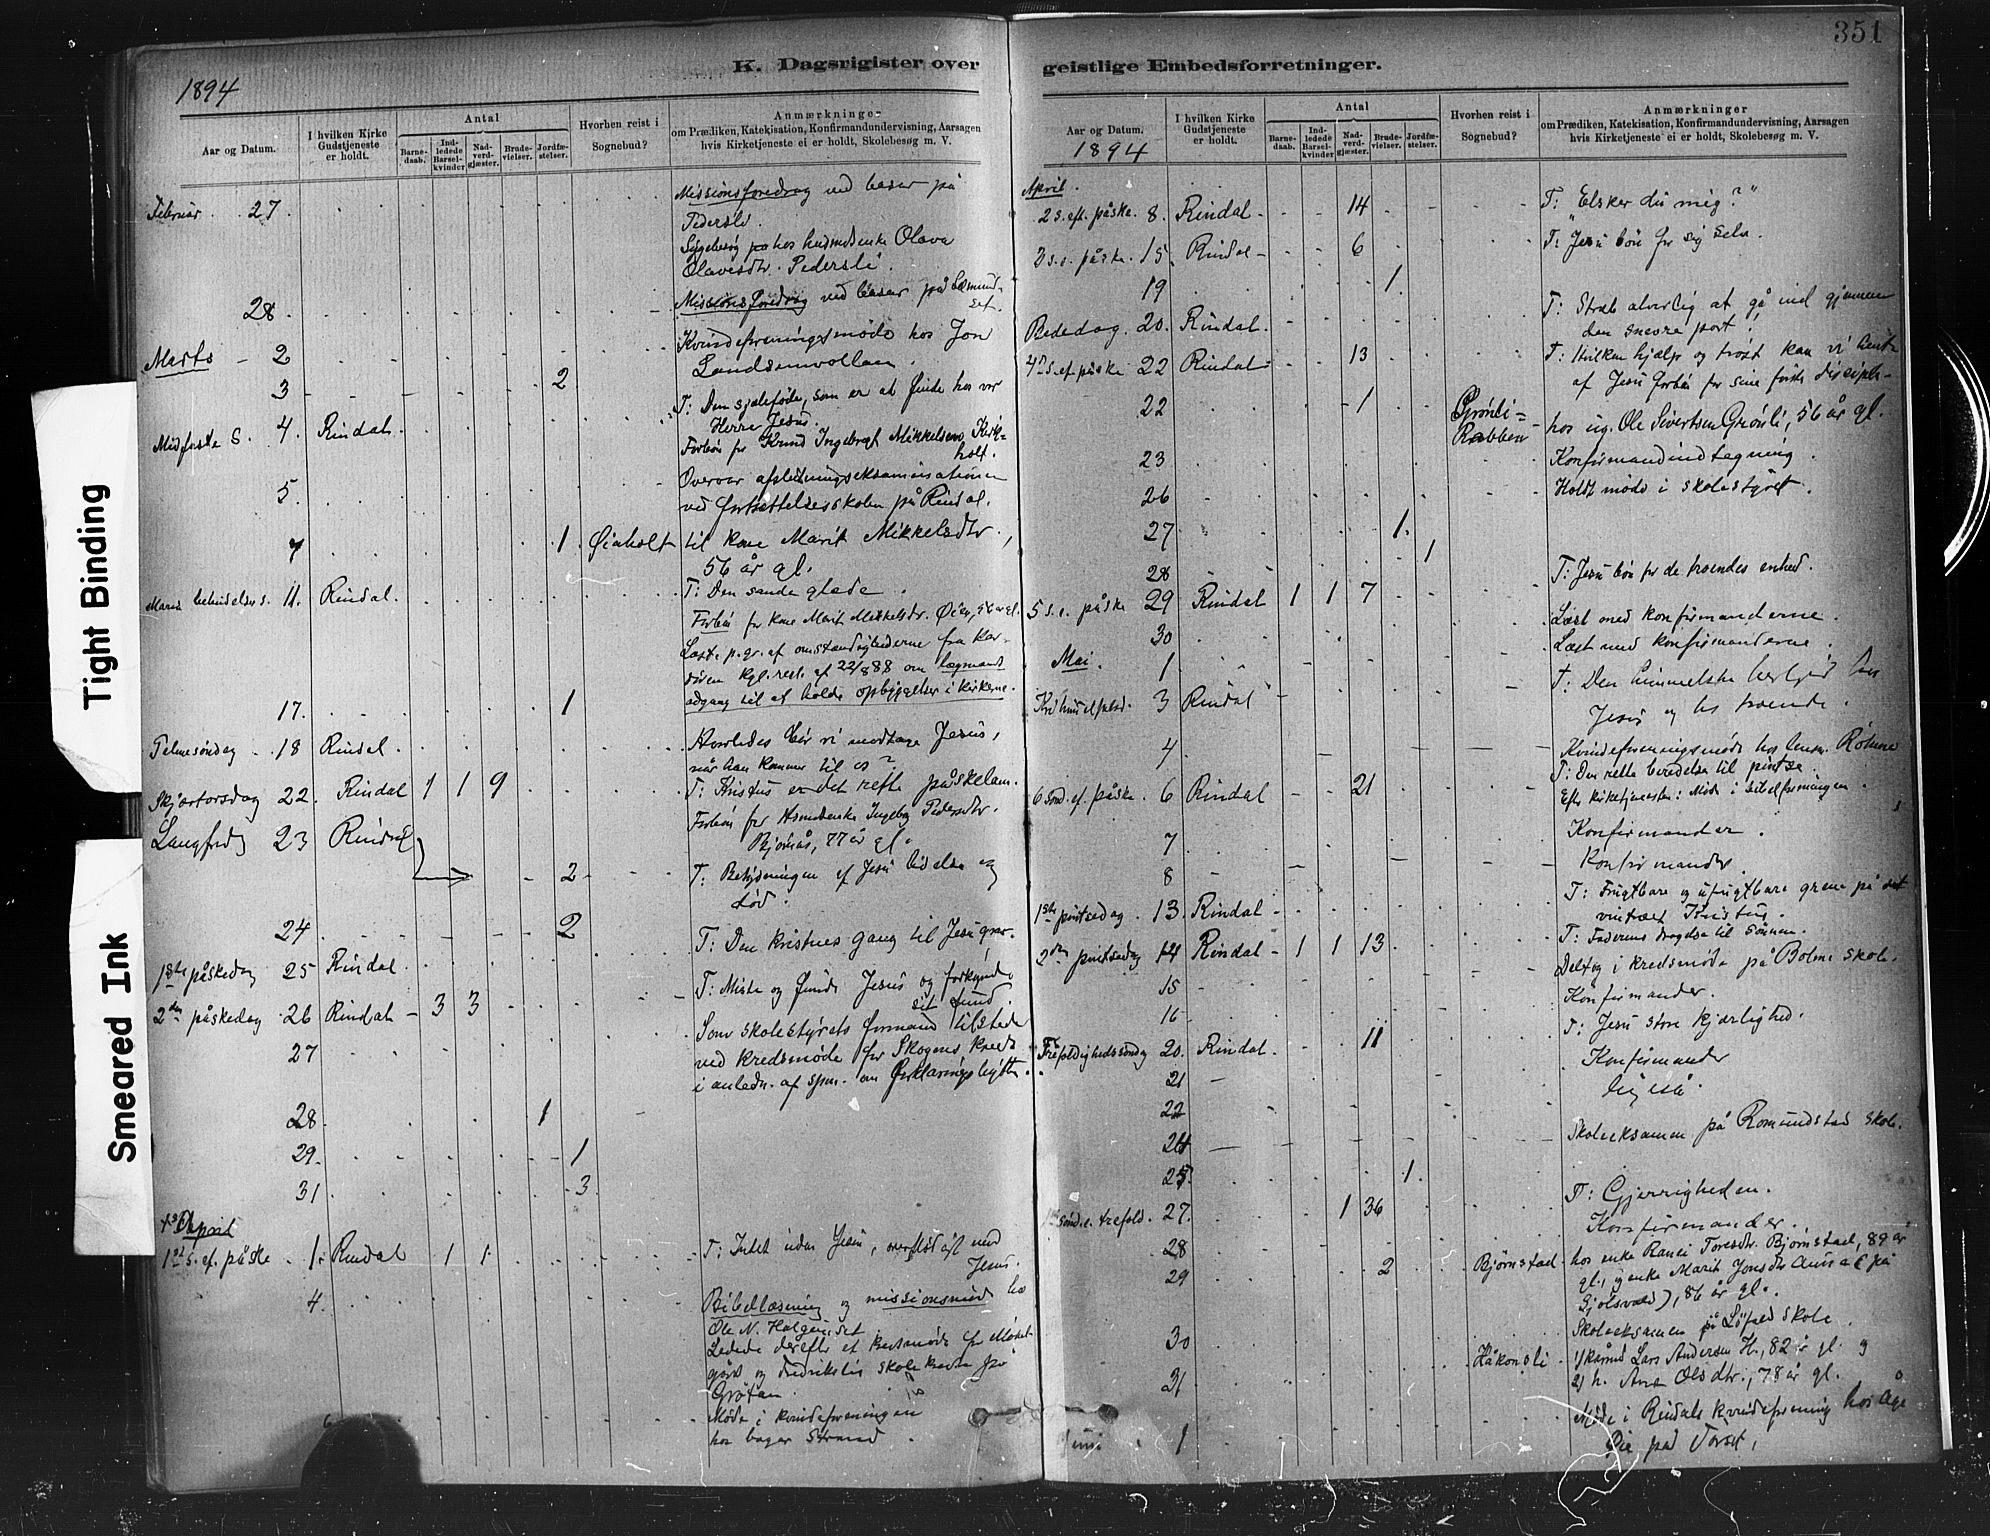 351
K. Dagsrigister over geistlige Embedsforretninger.
1894
Aar og Datum.
I hvilken Kirke Gudstjeneste er holdt.
Antal
Barnedaab.
Indledede Barselkvinder
Nadverdgjæster.
Brudevielser.
Jordfæstelser.
Hvorhen reist i Sognebud?
Anmærkninger
om Prædiken, Katekisation, Konfirmandundervisning, Aarsagen
hvis Kirketjeneste ei er holdt, Skolebesøg m. V.
Februar 27. Missionsforedrag ved basar på
Pedersli.
Sygebesøg hos Olava
Olavesdtr. Pedersli.
28. Missionsforedrag ved basar på
Marts 2 Kvindeforeningsmöde hos Jon
Landsemvollen.
3 2
Midfaste S. 4. Rindal. T: Den sjæleföde, som er at finde hos vor
Herre Jesus.
Forbön for Knud Ingebrigt Mikkelsen
5. Overvar afslutningseksaminationen
ved fortsættelsesskolen på Rindal.
7 1. Øiaholt til kone Marit Mikkelsdtr.,
56 år gl.
Mariæ bebudelses s. 11. Rindal. T: Den sande glæde.
Forbön for kone Marit Mikkelsdtr.
Læste p. gr. af omstændighederne fra kor-
dören kgl. res. af 22/8 88 om lægmænds
adgang til at holde opbyggelser i kirkerne.
17. 1
Palmesöndag 18 Rindal. Hvorledes bör vi modtage Jesus,
når han kommer til os?
Skjærtorsdag 22. Rindal 1 1 9 T: Kristus er det rette påskelam.
Forbön for Ingebg Pedersdtr.
Bjørnås, 77 år gl.
Langfredg 23 Rindal 2 T: Betydningen af Jesu lidelse og
död.
24 2
1ste påskedag 25 Rindal T: Den kristnes gang til Jesu grav.
2den påskedag 26 Rindal 3 3 T: Miste og finde Jesus og forkynde
27 Som skolestyrets formand tilstede
ved kredsmöde for Skogens kreds
i anledn. af spm. om
28. 1
29. 1
31 3
April
1ste s. ef. påske 1. Rindal 1 1 T: Intet uden Jesu, overflödigt med
Jesus.
4. Bibellæsning og missionsmöde hos
Ole N.
Ledede derefter et kredsmöde
og Fredriksli skolekreds på
Grötan.
6 Möde i kvindeforeningen
hos bager Strand.
Aar og Datum.
1894
I hvilken Kirke Gudstjeneste er holdt.
Antal
Barnedaab.
Indledede Barselkvinder
Nadverdgjæster.
Brudevielser.
Jordfæstelser.
Hvorhen reist i Sognebud?
Anmærkninger
om Prædiken, Katekisation, Konfirmandundervisning, Aarsagen
hvis Kirketjeneste ei er holdt, Skolebesøg m. V.
April.
2 s. eft. påske. 8. Rindal 14 T: "Elsker du mig?"
3 s. e. påske. 15. Rindal 6 T: Jesu bön for sig selv.
19 1.
Bededag. 20. Rindal. T: Stræb alvorlig at gå ind gjennem
den snevre port!
4de s. ef. påske 22 Rindal 13 T: Hvilken hjælp og tröst kan vi hente
af Jesu forbön for sine förste disciple
22 1 Grönli-
Rabben hos Ole Sivertsen Grönli, 56 år gl.
23 Konfirmandindtegning.
26 Holdt möde i skolestyret.
27 1.
28 1
5 s. e. påske 29 Rindal 1 1 7 T: Jesu bön for de troendes enhed.
30 Læst med konfirmanderne.
Mai. 1 Læst med konfirmanderne.
Kri himmelfartsd. 3 Rindal T: Den himmelske herlighed
Jesus og hs troende.
4 Kvindeforeningsmöde hos
6 sönd. ef. påske 6 Rindal 21 T: Den rette beredelse til pintse.
Efter kirketjenesten: Möde i
7 Konfirmander.
8 Konfirmander.
1ste pintsedag. 13. Rindal T: Frugtbare og ufrugtbare grene på det
vintræet Kristus.
2den pintsedag 14 Rindal 1 1 13 T: Faderens dragelse til Sönnen.
15 Deltog i kredsmöde på Bolme skole.
16 Konfirmander.
Trefoldighedssöndag 20. Rindal 11 T: Jesu store kjærlighed.
21 Konfirmander
22
24 Skoleeksamen på Romundstad skole.
25 1.
1ste sönd. e. trefold. 27. 1 36 T: Gjerrigheden.
28 Konfirmander.
29 2 Bjørnstad. hos enke Toresdtr. Bjørnstad, 89 år
gl., og enke Marit Jonsdtr (på
Gjölsvold), 86 år gl.
30 Skoleeksamen på Löfald skole.
31 Håkonsli 1) kårmd Lars Andersen H., 82 år gl. og
2) h. Ane Olsdtr., 78 år gl.
Juni 1 Möde i Rindals kvindeforening hos
på Torset.
Tight Binding
Smeared Ink